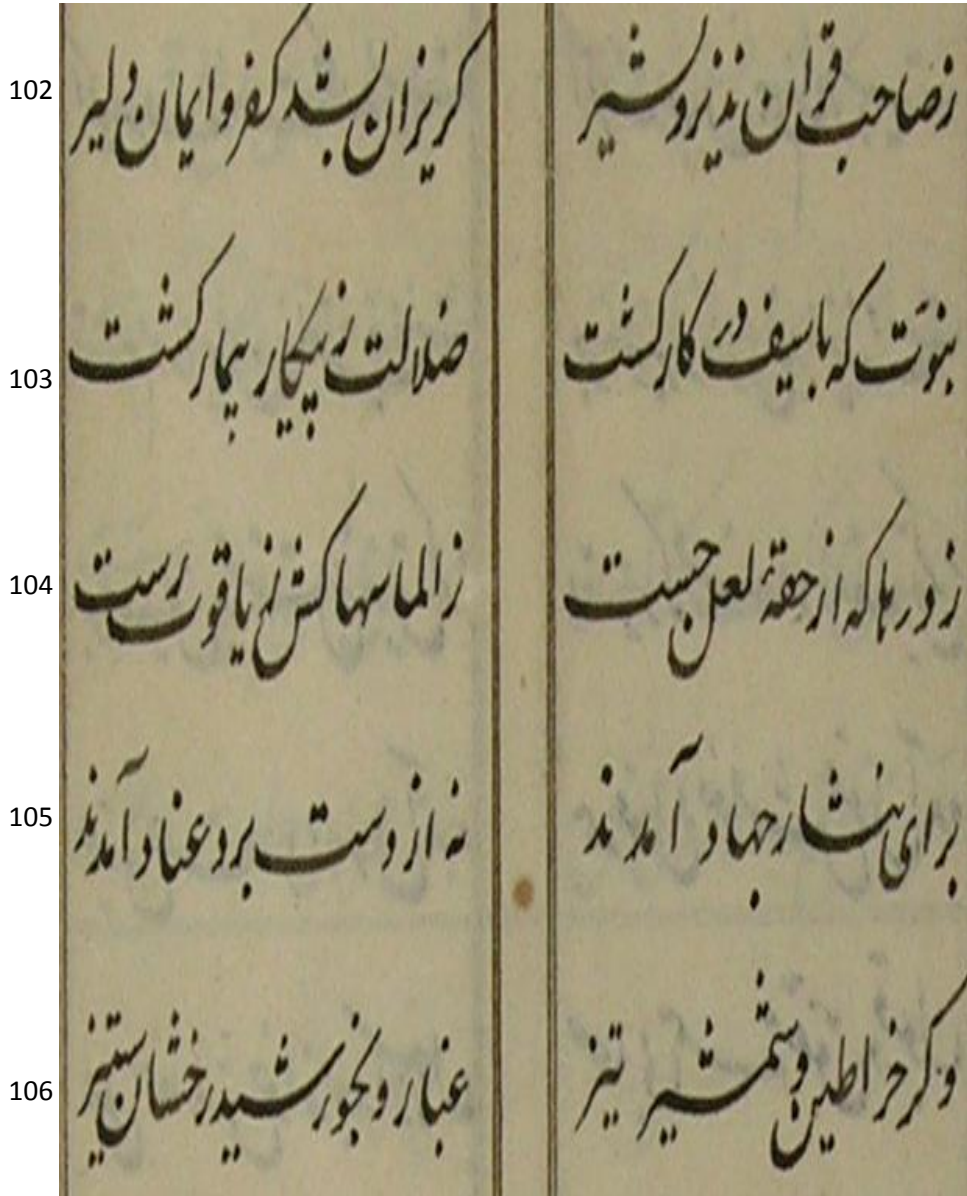 102 زصاحب قران نذیزد و شیر کریزان بشد کفر و ایمان دلیر
103 بنوت که با سیف در کار کشت ضلالت ز پیکار بیمار کشت
104 ز درها که از حقهٔ لعل جست ز الماسها کش نی یاقوت رست
105 برای نثار جهاد آمدند نه از دست برد عناد آمدند
106 و کر خراطین و شمشیر تیز غبار و بخورشید رخشان ستیز